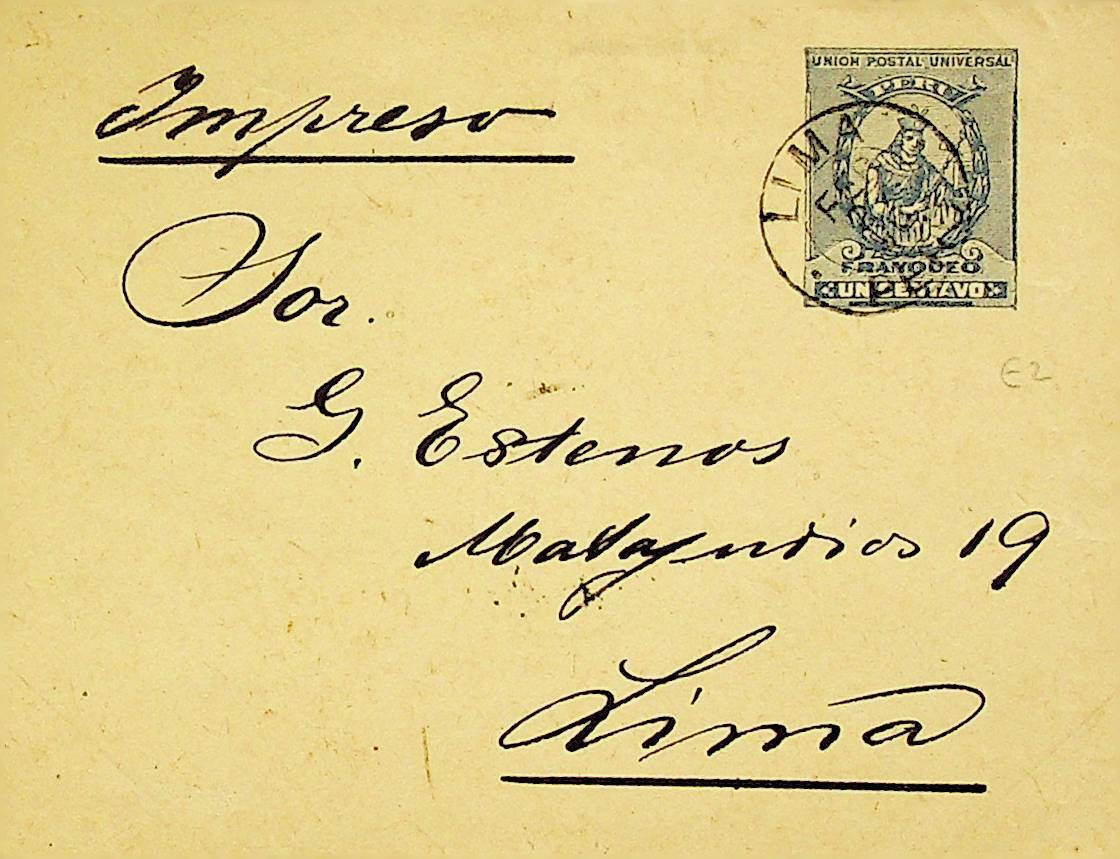 Impreso
UNION POSTAL UNIVERSAL
PERU
LIMA
FRANQUEO
UN CENTAVO
Sor.
G. Estenos
Matajudios 19
Lima